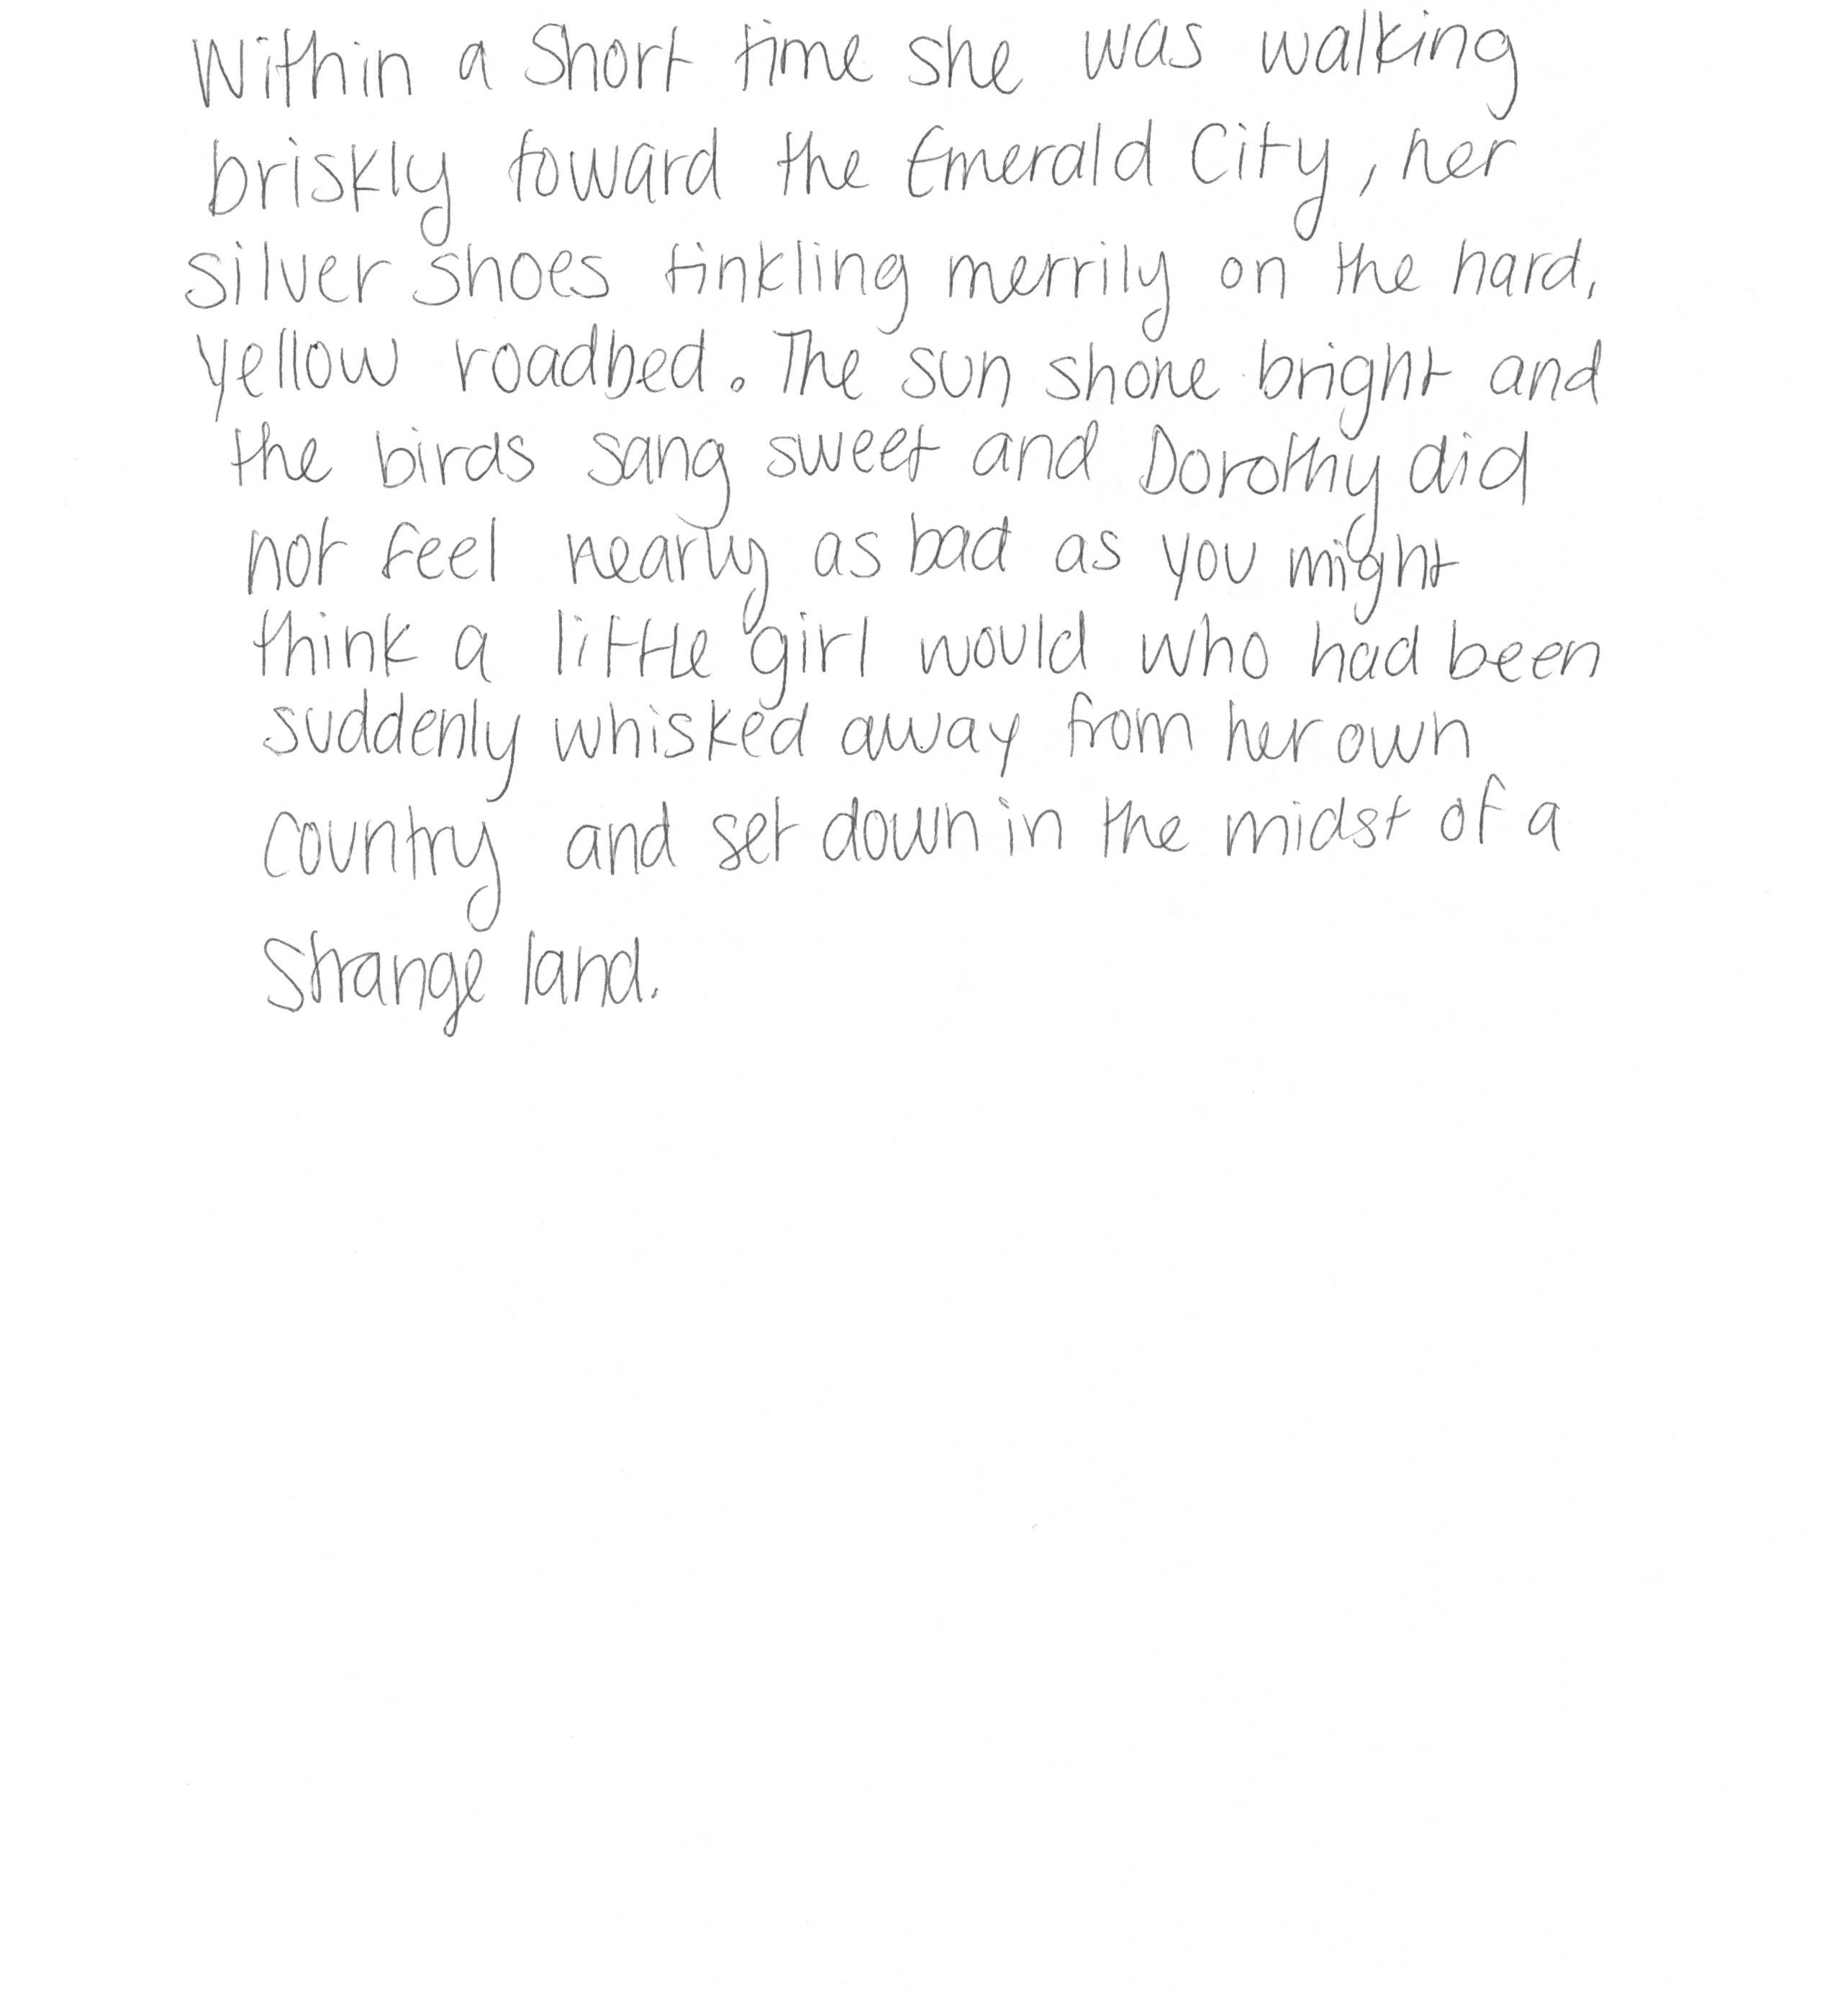 Within a Short time she was walking
briskly toward the Emerald City, her
silver shoes tinkling merrily on the hard,
yellow roadbed. The sun shone bright and
the birds sang sweet and Dorothy did
not feel nearly as bad as you might
think a little girl would who had been
suddenly whisked away from her own
country and set down in the midst of a
Strange land.